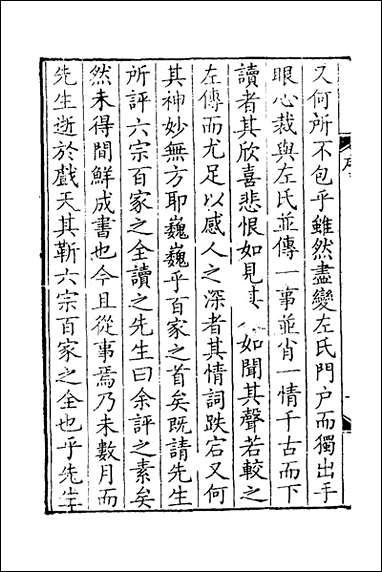 又何所不包乎雖然盡變左氏門户而獨出手
眼心裁與左氏並傳一事並肖一情千古而下
讀者其欣喜悲恨如見其 如聞其聲若較之
左傳而尤足以感人之深者其情詞跌宕又何
其神妙無方耶巍巍乎百家之首矣既請先生
所評六宗百家之全讀之先生曰余評之素矣
然未得間鮮成書也今且從事焉乃未數月而
先生逝於戲天其靳六宗百家之全也乎先生